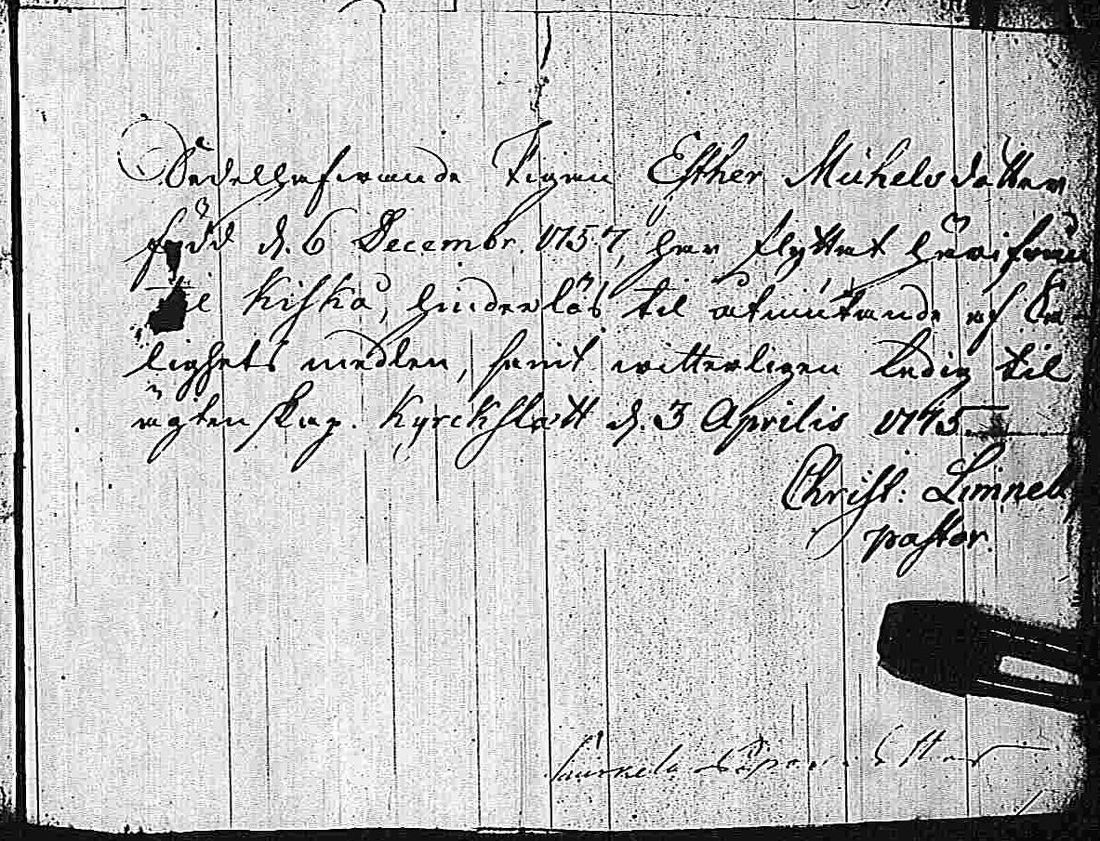 Sedelhafwande Pigan Esther Michelsdotter
född d. 6 Decembr. 1757, har flyttat härifrån
til Kisko, hinderlös til åtniutande af Sa-
lighets medlen, samt witterligen ledig til
ägtenskap. Kyrckslätt d. 3 Aprilis 1775.
Christ: Limnell
pastor.